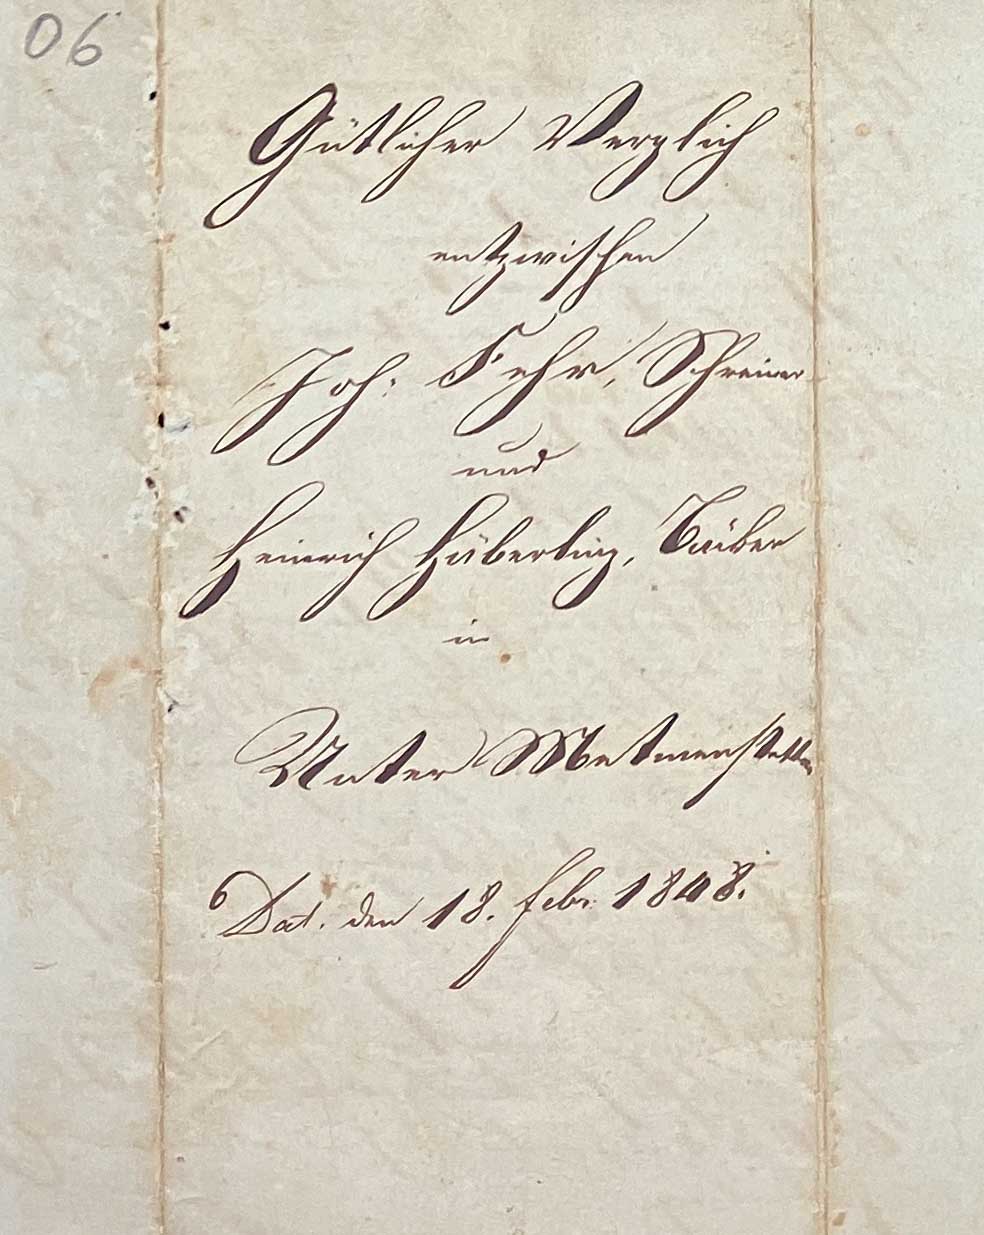 06
Gütlicher Verglich
entzwischen
Joh: Fehr, Schreiner
und
Heinrich Häberling, Küfer
in
Unter Metmenstetten
Dat. den 18. Febr. 1848.